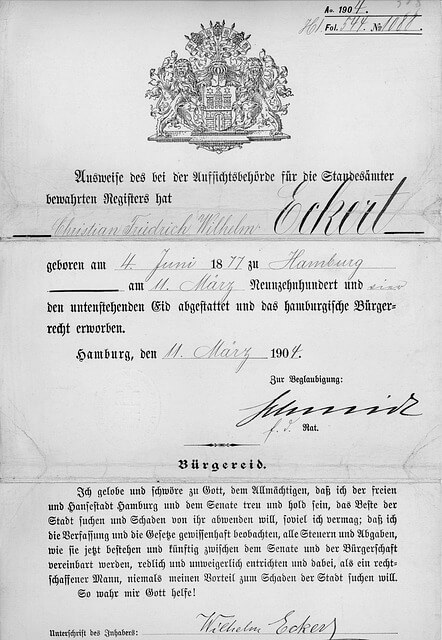 Ao. 1904.
Fol. 544. No 1081
Ausweise des bei der Aufsichtsbehörde für die Standesämter
bewahrten Registers hat
Christian Friedrich Wilhelm Eckert
geboren am 4. Juni 1877 zu Hamburg
am 11. März Neunzehnhundert und vier
den untenstehenden Eid abgestattet und das hamburgische Bürger-
recht erworben.
Hamburg, den 11. März 1904.
Zur Beglaubigung:
Schmidt
f. d. Rat.
Bürgereid.
Ich gelobe und schwöre zu Gott, dem Allmächtigen, daß ich der freien
und Hansestadt Hamburg und dem Senate treu und hold sein, das Beste der
Stadt suchen und Schaden von ihr abwenden will, soviel ich vermag; daß ich
die Verfassung und die Gesetze gewissenhaft beobachten, alle Steuern und Abgaben,
wie sie jetzt bestehen und künftig zwischen dem Senate und der Bürgerschaft
vereinbart werden, redlich und unweigerlich entrichten und dabei, als ein recht-
schaffener Mann, niemals meinen Vorteil zum Schaden der Stadt suchen will.
So wahr mir Gott helfe!
Unterschrift des Inhabers: Wilhelm Eckert